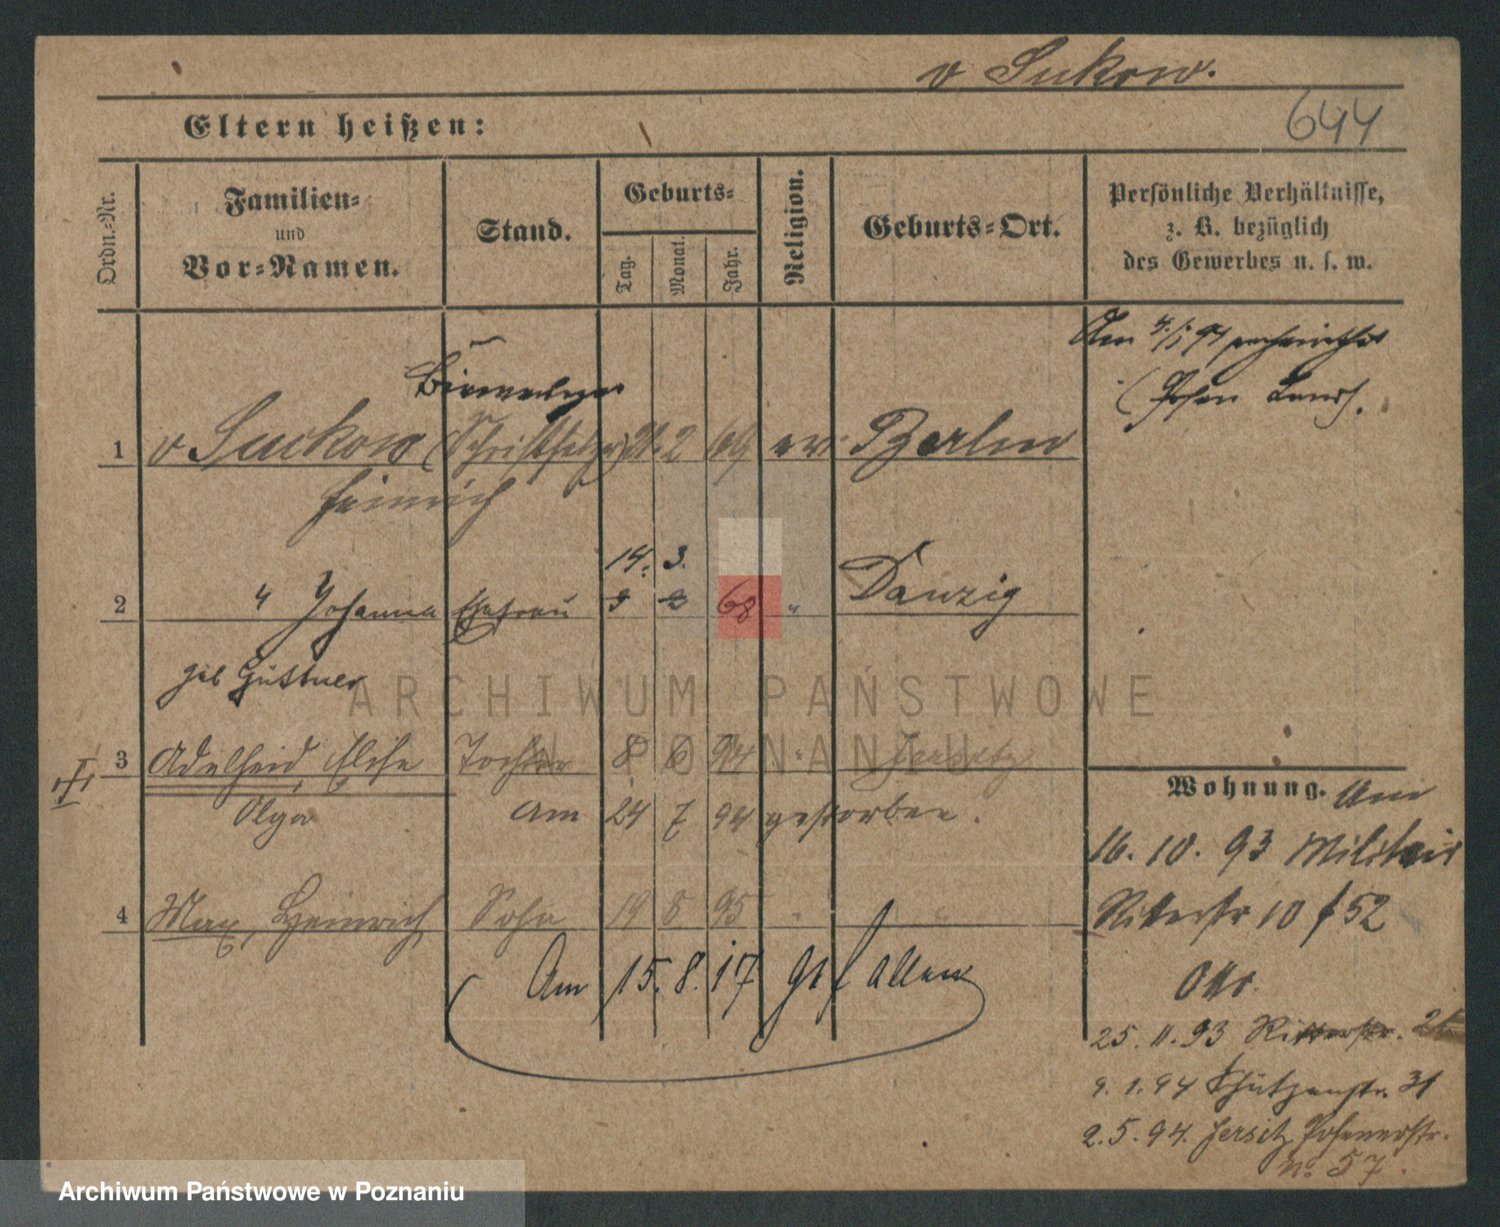 v Sukow.
644
Eltern heißen:
Ordn.-Nr.
Familien-
und
Vor-Namen.
Stand.
Geburts-
Tag.
Monat.
Jahr.
Religion.
Geburts-Ort.
Persönliche Verhältnisse,
z. B. bezüglich
des Gewerbes u. s. w.
Am 4/1 94
(Posen Landh.
1 v Suckow (Schriftsetzer) 21. 2 69 ev. Berlin
Heinrich
14. 3.
2 " Johanna Ehefrau 9 2 68 " Danzig
geb Güttner
3 Adelheid, Else Tochter 8 6 94 " Jersitz
Olga am 24 7 94 gestorben.
4 Max, Heinrich Sohn 19 8 95 "
Am 15. 8. 17 gefallen
Wohnung. Am
16. 10. 93 Militair
Ritterstr 10 f 52
Otto.
25. 11. 93 Ritterstr.
9. 1. 94 Schützenstr. 31
2. 5. 94. Jersitz Posenerstr.
No 57.
ARCHIWUM PAŃSTWOWE
W POZNANIU
Archiwum Państwowe w Poznaniu